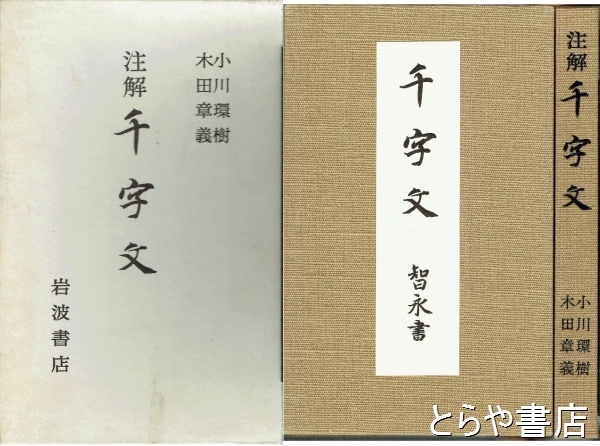 小川環樹
木田章義
注解
千字文
岩波書店
千字文
智永書
注解
千字文
小川環樹
木田章義
とらや書店